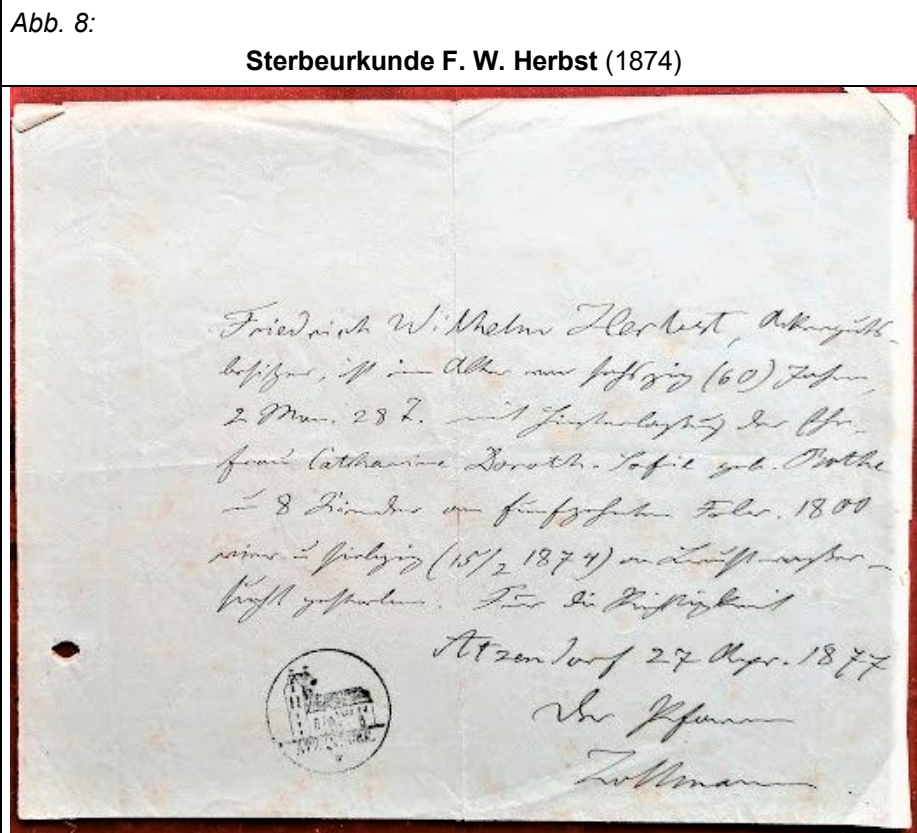 Abb. 8:
Sterbeurkunde F. W. Herbst (1874)
Friedrich Wilhelm Herbst, Ackerguts-
besitzer, ist im Alter von sechszig (60) Jahren,
2 Mon. 28 T. mit Hinterlassung der Ehe-
frau Catharine Doroth. Sofie geb. Bothe
u 8 Kinder am fünfzehnten Febr. 1800
vier u siebzig (15/2 1874) an Brustwasser-
sucht gestorben. Für die Richtigkeit
Atzendorf 27 Apr. 1877
Der Pfarrer